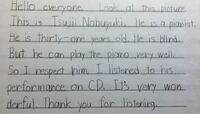 Hello everyone. Look at this picture.
This is Tsujii Nobuyuki. He is a pianist.
He is thirty-one years old. He is blind.
But he can play the piano very well.
So I respect him. I listened to his
performance on CD. It's very won
derful. Thank you for listening.